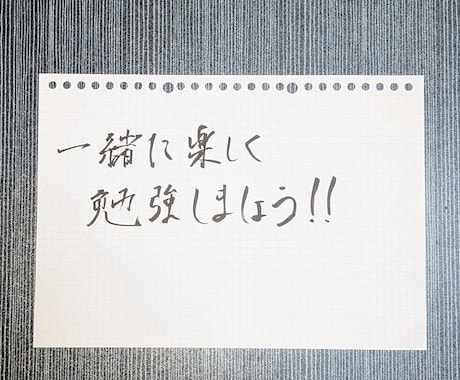 一緒に楽しく
勉強しましょう!!